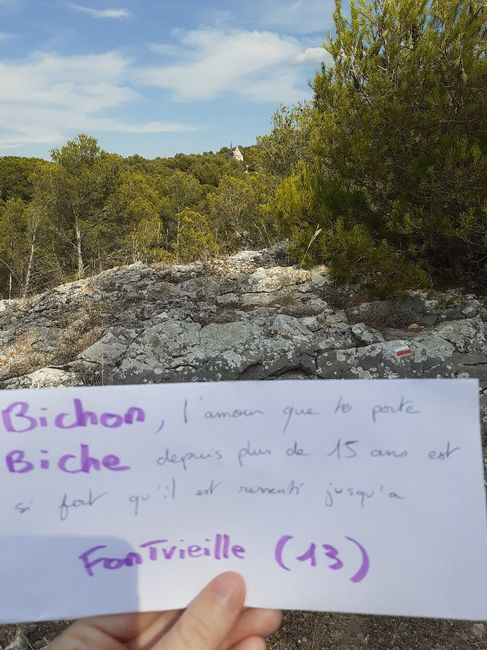 Bichon, l'amour que te porte
Biche depuis plus de 15 ans est
si fort qu'il est ressenti jusqu'a
FonTvieille (13)